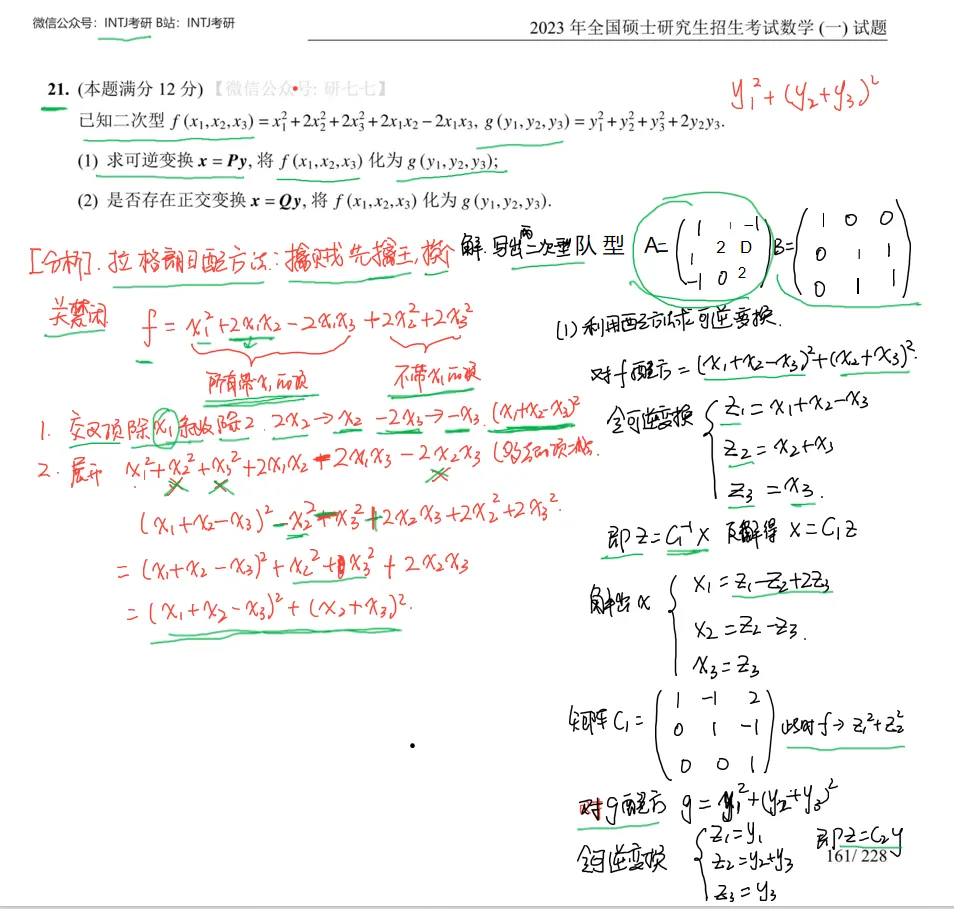 微信公众号：INTJ考研 B站：INTJ考研
2023 年全国硕士研究生招生考试数学 (一) 试题
y₁²+(y₂+y₃)²
21. (本题满分 12 分) 【微信公众号: 研七七】
已知二次型 f (x₁,x₂,x₃) = x₁²+2x₂²+2x₃²+2x₁x₂−2x₁x₃, g (y₁,y₂,y₃) = y₁²+y₂²+y₃²+2y₂y₃.
(1) 求可逆变换 x = Py, 将 f (x₁,x₂,x₃) 化为 g (y₁,y₂,y₃);
(2) 是否存在正交变换 x = Qy, 将 f (x₁,x₂,x₃) 化为 g (y₁,y₂,y₃).
[分析]. 拉格朗日配方法: 擒贼先擒王, 挨个
关禁闭
f = x₁²+2x₁x₂−2x₁x₃+2x₂²+2x₃²
所有带x₁的项 不带x₁的项
1. 交叉项除x₁系数除2. 2x₂→x₂ −2x₃→−x₃. (x₁+x₂−x₃)²
2. 展开 x₁²+x₂²+x₃²+2x₁x₂−2x₁x₃−2x₂x₃
(x₁+x₂−x₃)²−x₂²−x₃²+2x₂x₃+2x₂²+2x₃².
= (x₁+x₂−x₃)²+x₂²+x₃²+2x₂x₃
= (x₁+x₂−x₃)²+(x₂+x₃)².
解. 写出两二次型队型 A= B=
1 1 −1
1 2 0
−1 0 2
1 0 0
0 1 1
0 1 1
(1) 利用配方法求可逆变换.
对f配方 = (x₁+x₂−x₃)²+(x₂+x₃)².
令可逆变换
z₁ = x₁+x₂−x₃
z₂ = x₂+x₃
z₃ = x₃.
即 z=C₁⁻¹x 反解得 x=C₁z
解出x
x₁=z₁−z₂+2z₃
x₂=z₂−z₃.
x₃=z₃
矩阵C₁=
1 −1 2
0 1 −1
0 0 1
此时f→z₁²+z₂²
对g配方 g=y₁²+(y₂+y₃)²
令可逆变换
z₁=y₁
z₂=y₂+y₃
z₃=y₃
即z=C₂y
161/ 228